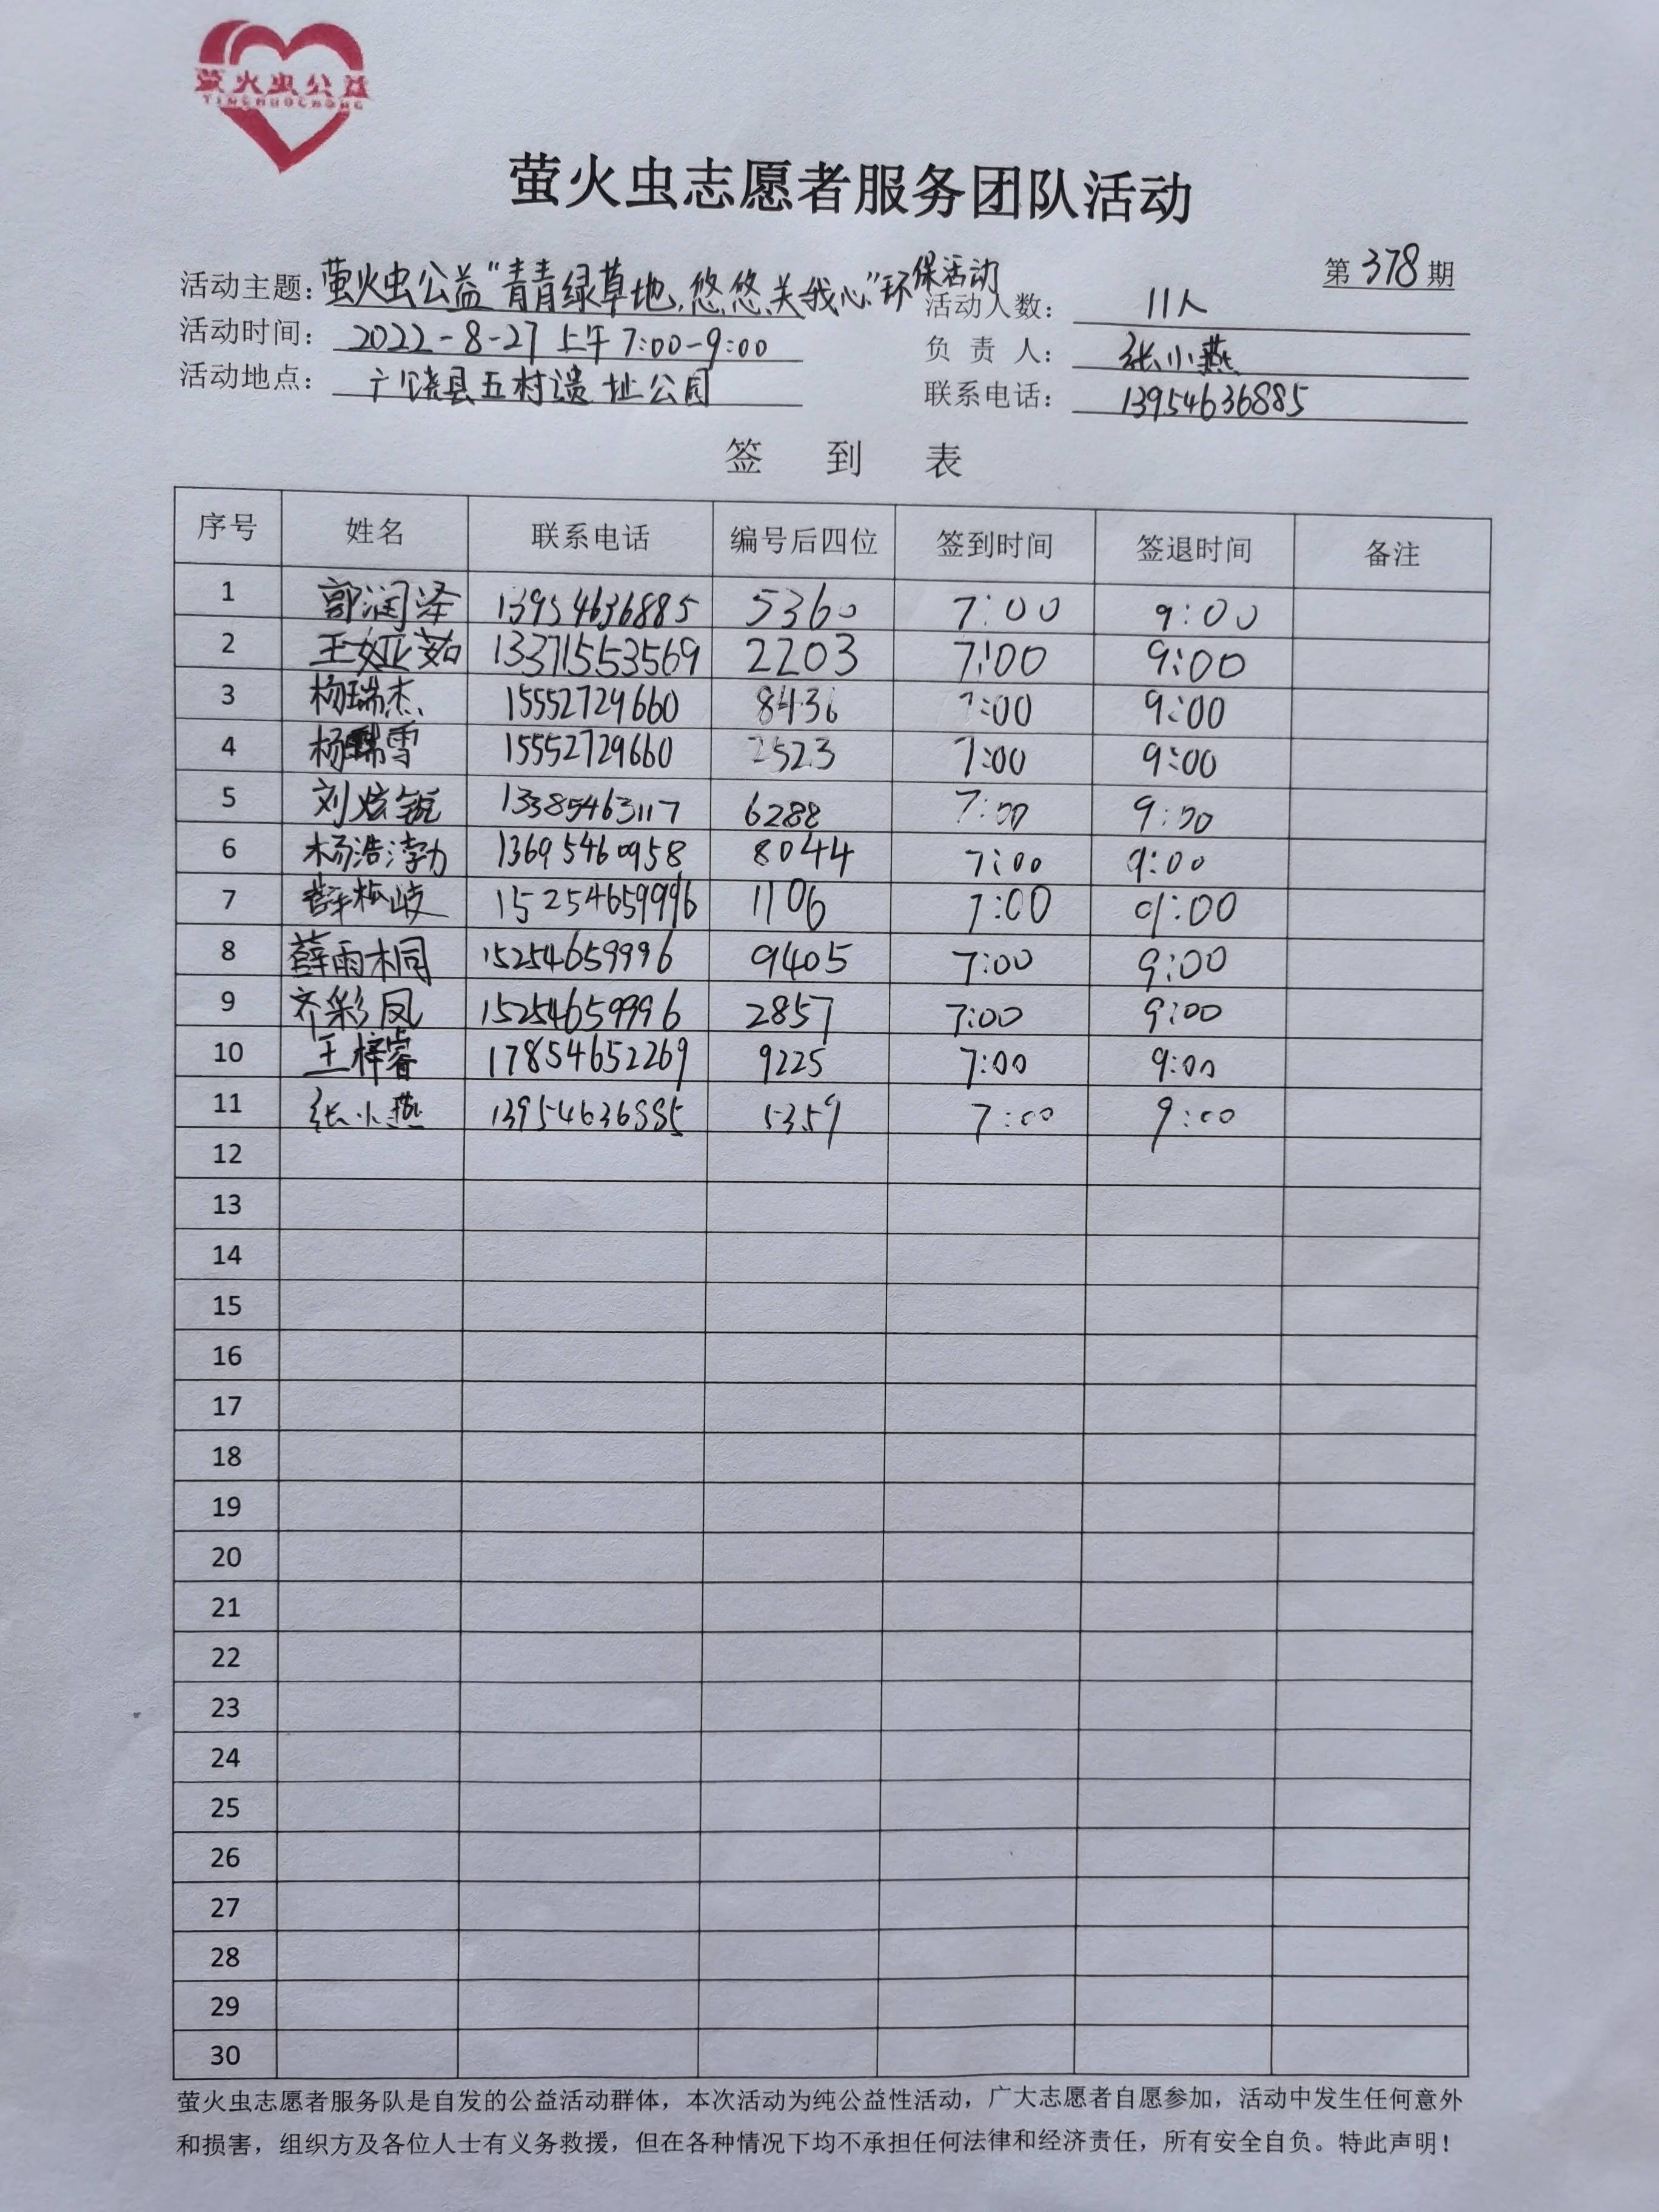 萤火虫公益
YINGHUOCHONG
萤火虫志愿者服务团队活动
第 378 期
活动主题：萤火虫公益“青青绿草地，悠悠关我心”环保活动 活动人数： 11人
活动时间： 2022-8-27 上午 7:00-9:00 负 责 人： 张小燕
活动地点： 广饶县五村遗址公园 联系电话： 13954636885
签 到 表
序号 姓名 联系电话 编号后四位 签到时间 签退时间 备注
1 郭润泽 13954636885 5360 7:00 9:00
2 王娅茹 13371553569 2203 7:00 9:00
3 杨瑞杰 15552729660 8436 7:00 9:00
4 杨瑞雪 15552729660 2523 7:00 9:00
5 刘炫锐 13385463117 6288 7:00 9:00
6 杨浩渤 13695460958 8044 7:00 9:00
7 薛松岐 15254659996 1106 7:00 9:00
8 薛雨桐 15254659996 9405 7:00 9:00
9 齐彩凤 15254659996 2857 7:00 9:00
10 王梓睿 17854652269 9225 7:00 9:00
11 张小燕 13954636885 5359 7:00 9:00
12
13
14
15
16
17
18
19
20
21
22
23
24
25
26
27
28
29
30
萤火虫志愿者服务队是自发的公益活动群体，本次活动为纯公益性活动，广大志愿者自愿参加，活动中发生任何意外
和损害，组织方及各位人士有义务救援，但在各种情况下均不承担任何法律和经济责任，所有安全自负。特此声明！